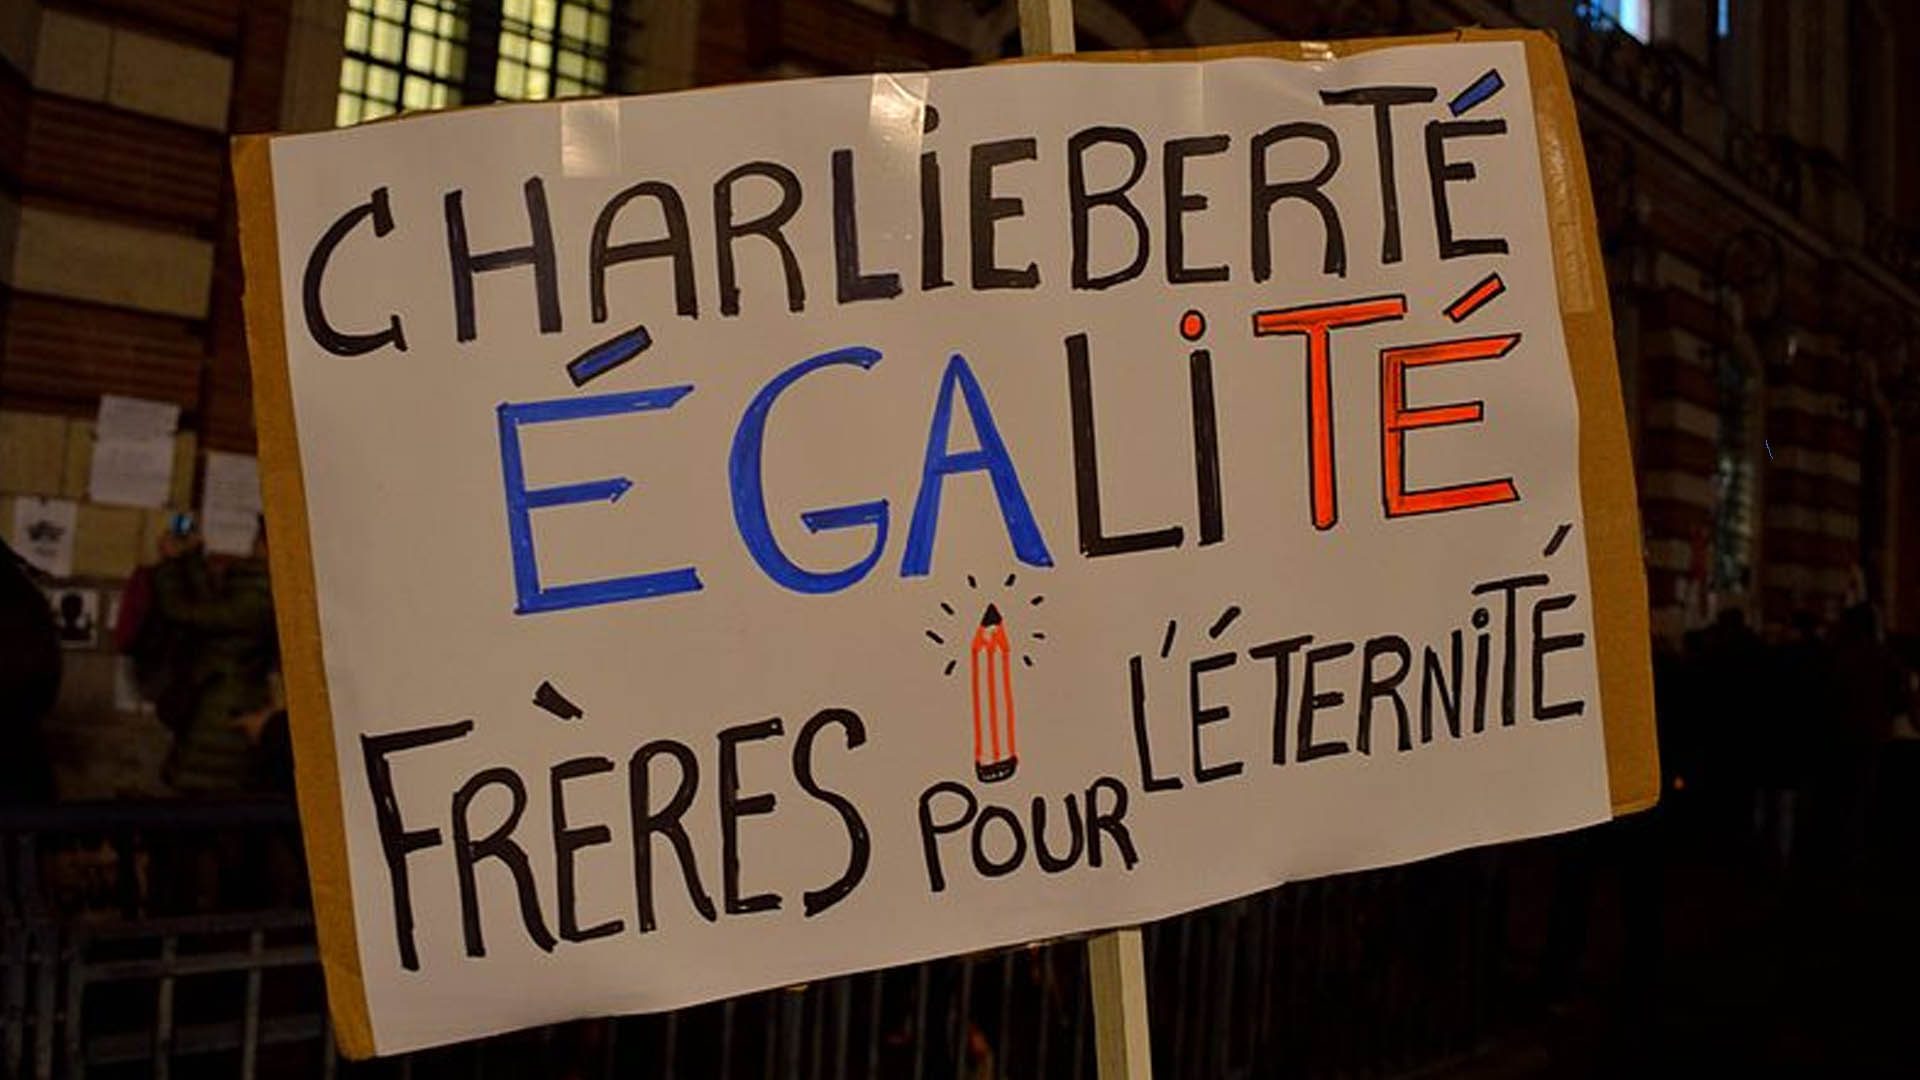 CHARLiEBERTÉ
ÉGALiTÉ
FRÈRES POUR L'ÉTERNiTÉ